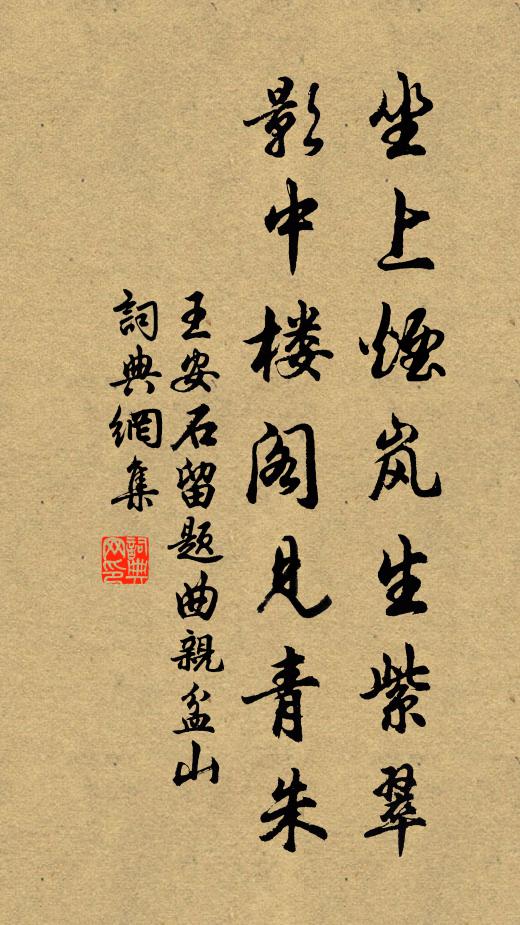 坐上煙岚生紫翠
影中楼阁見青朱
王安石留题曲親盆山
詞典網集
詞典网印